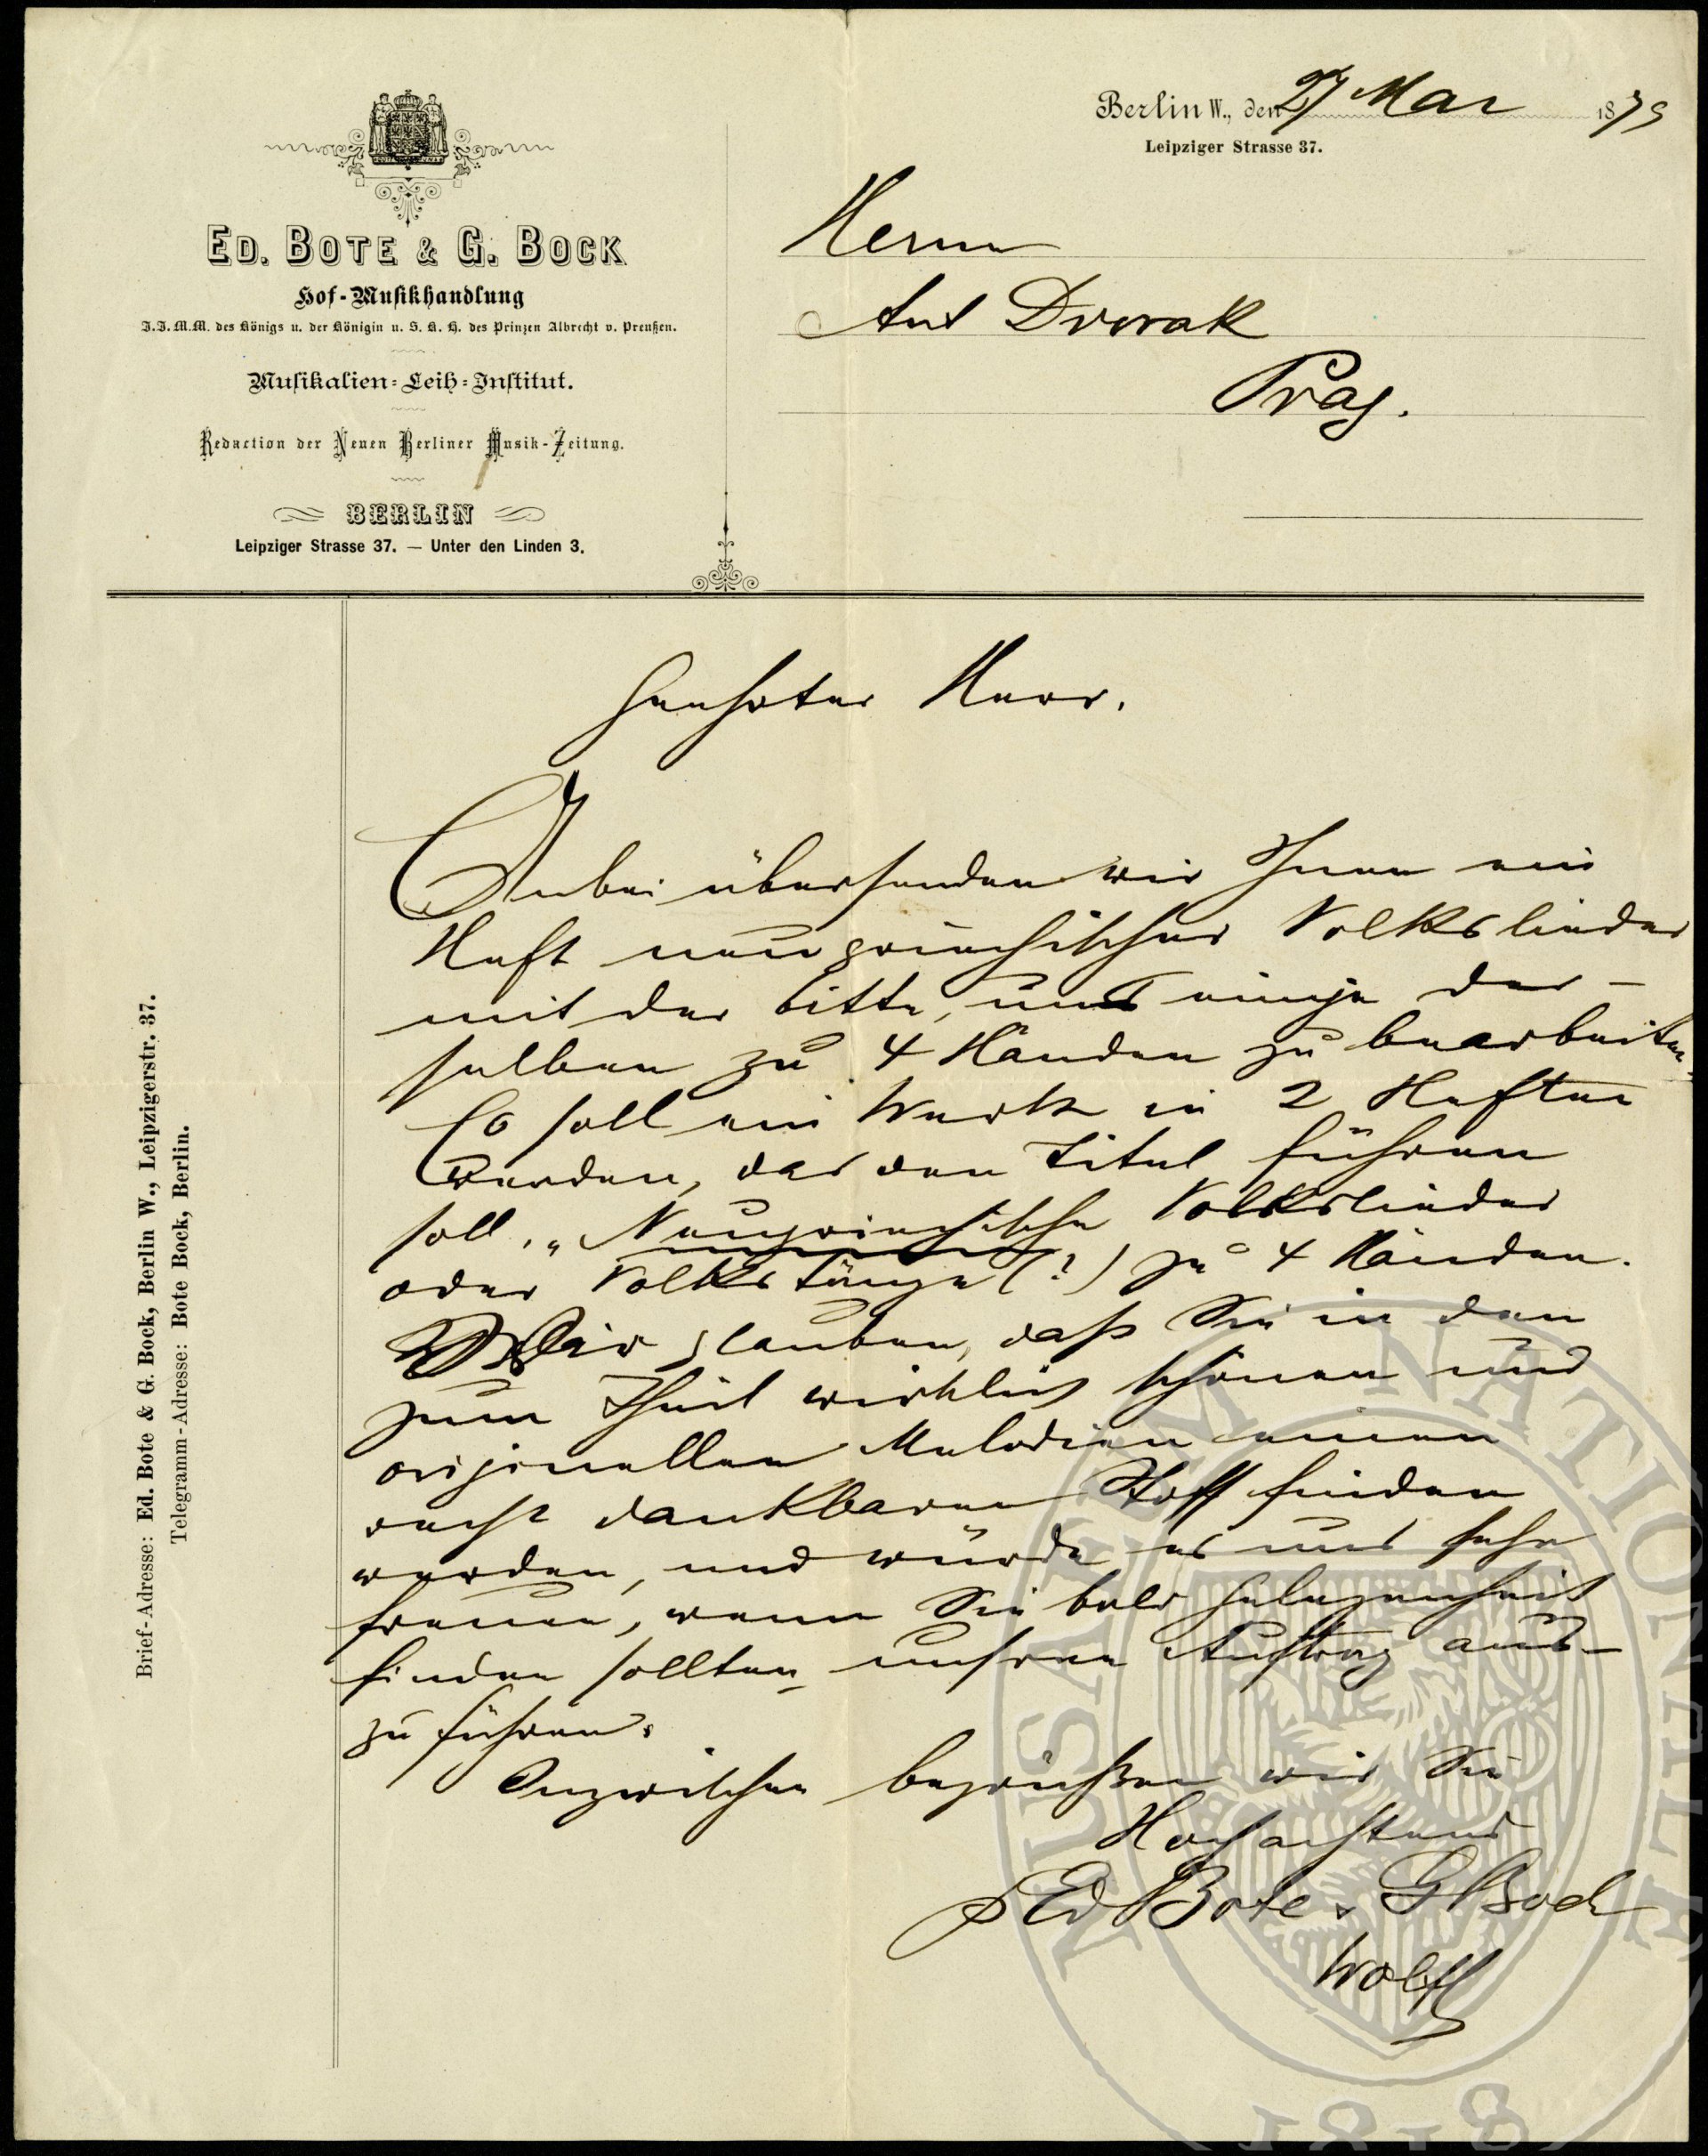 ED. BOTE & G. BOCK
Hof-Musikhandlung
I.I.M.M. des Königs u. der Königin u. S. K. H. des Prinzen Albrecht v. Preußen.
Musikalien-Leih-Institut.
Redaction der Neuen Berliner Musik-Zeitung.
BERLIN
Leipziger Strasse 37. — Unter den Linden 3.
Berlin W., den 27 Mar 1879
Leipziger Strasse 37.
Herrn
Ant Dvorak
Prag.
Brief-Adresse: Ed. Bote & G. Bock, Berlin W., Leipzigerstr. 37.
Telegramm-Adresse: Bote Bock, Berlin.
Geehrter Herr.
Anbei übersenden wir Ihnen ein
Heft neugriechischer Volkslieder
mit der Bitte, uns einige der-
selben zu 4 Händen zu bearbeiten.
Es soll ein Werk in 2 Heften
werden, das den Titel führen
soll, „Neugriechische Volkslieder
oder Volkstänze (?) zu 4 Händen.
Wir glauben, daß Sie in den
zum Theil wirklich schönen und
originellen Melodien einen
recht dankbaren Stoff finden
werden, und würde es uns sehr
freuen, wenn Sie bald Gelegenheit
finden sollten, unsren Auftrag aus-
zu führen.
Inzwischen begrüßen wir Sie
Hochachtend
p Ed Bote & G Bock
Wolff
MUSAEUM NATIONALE
1818